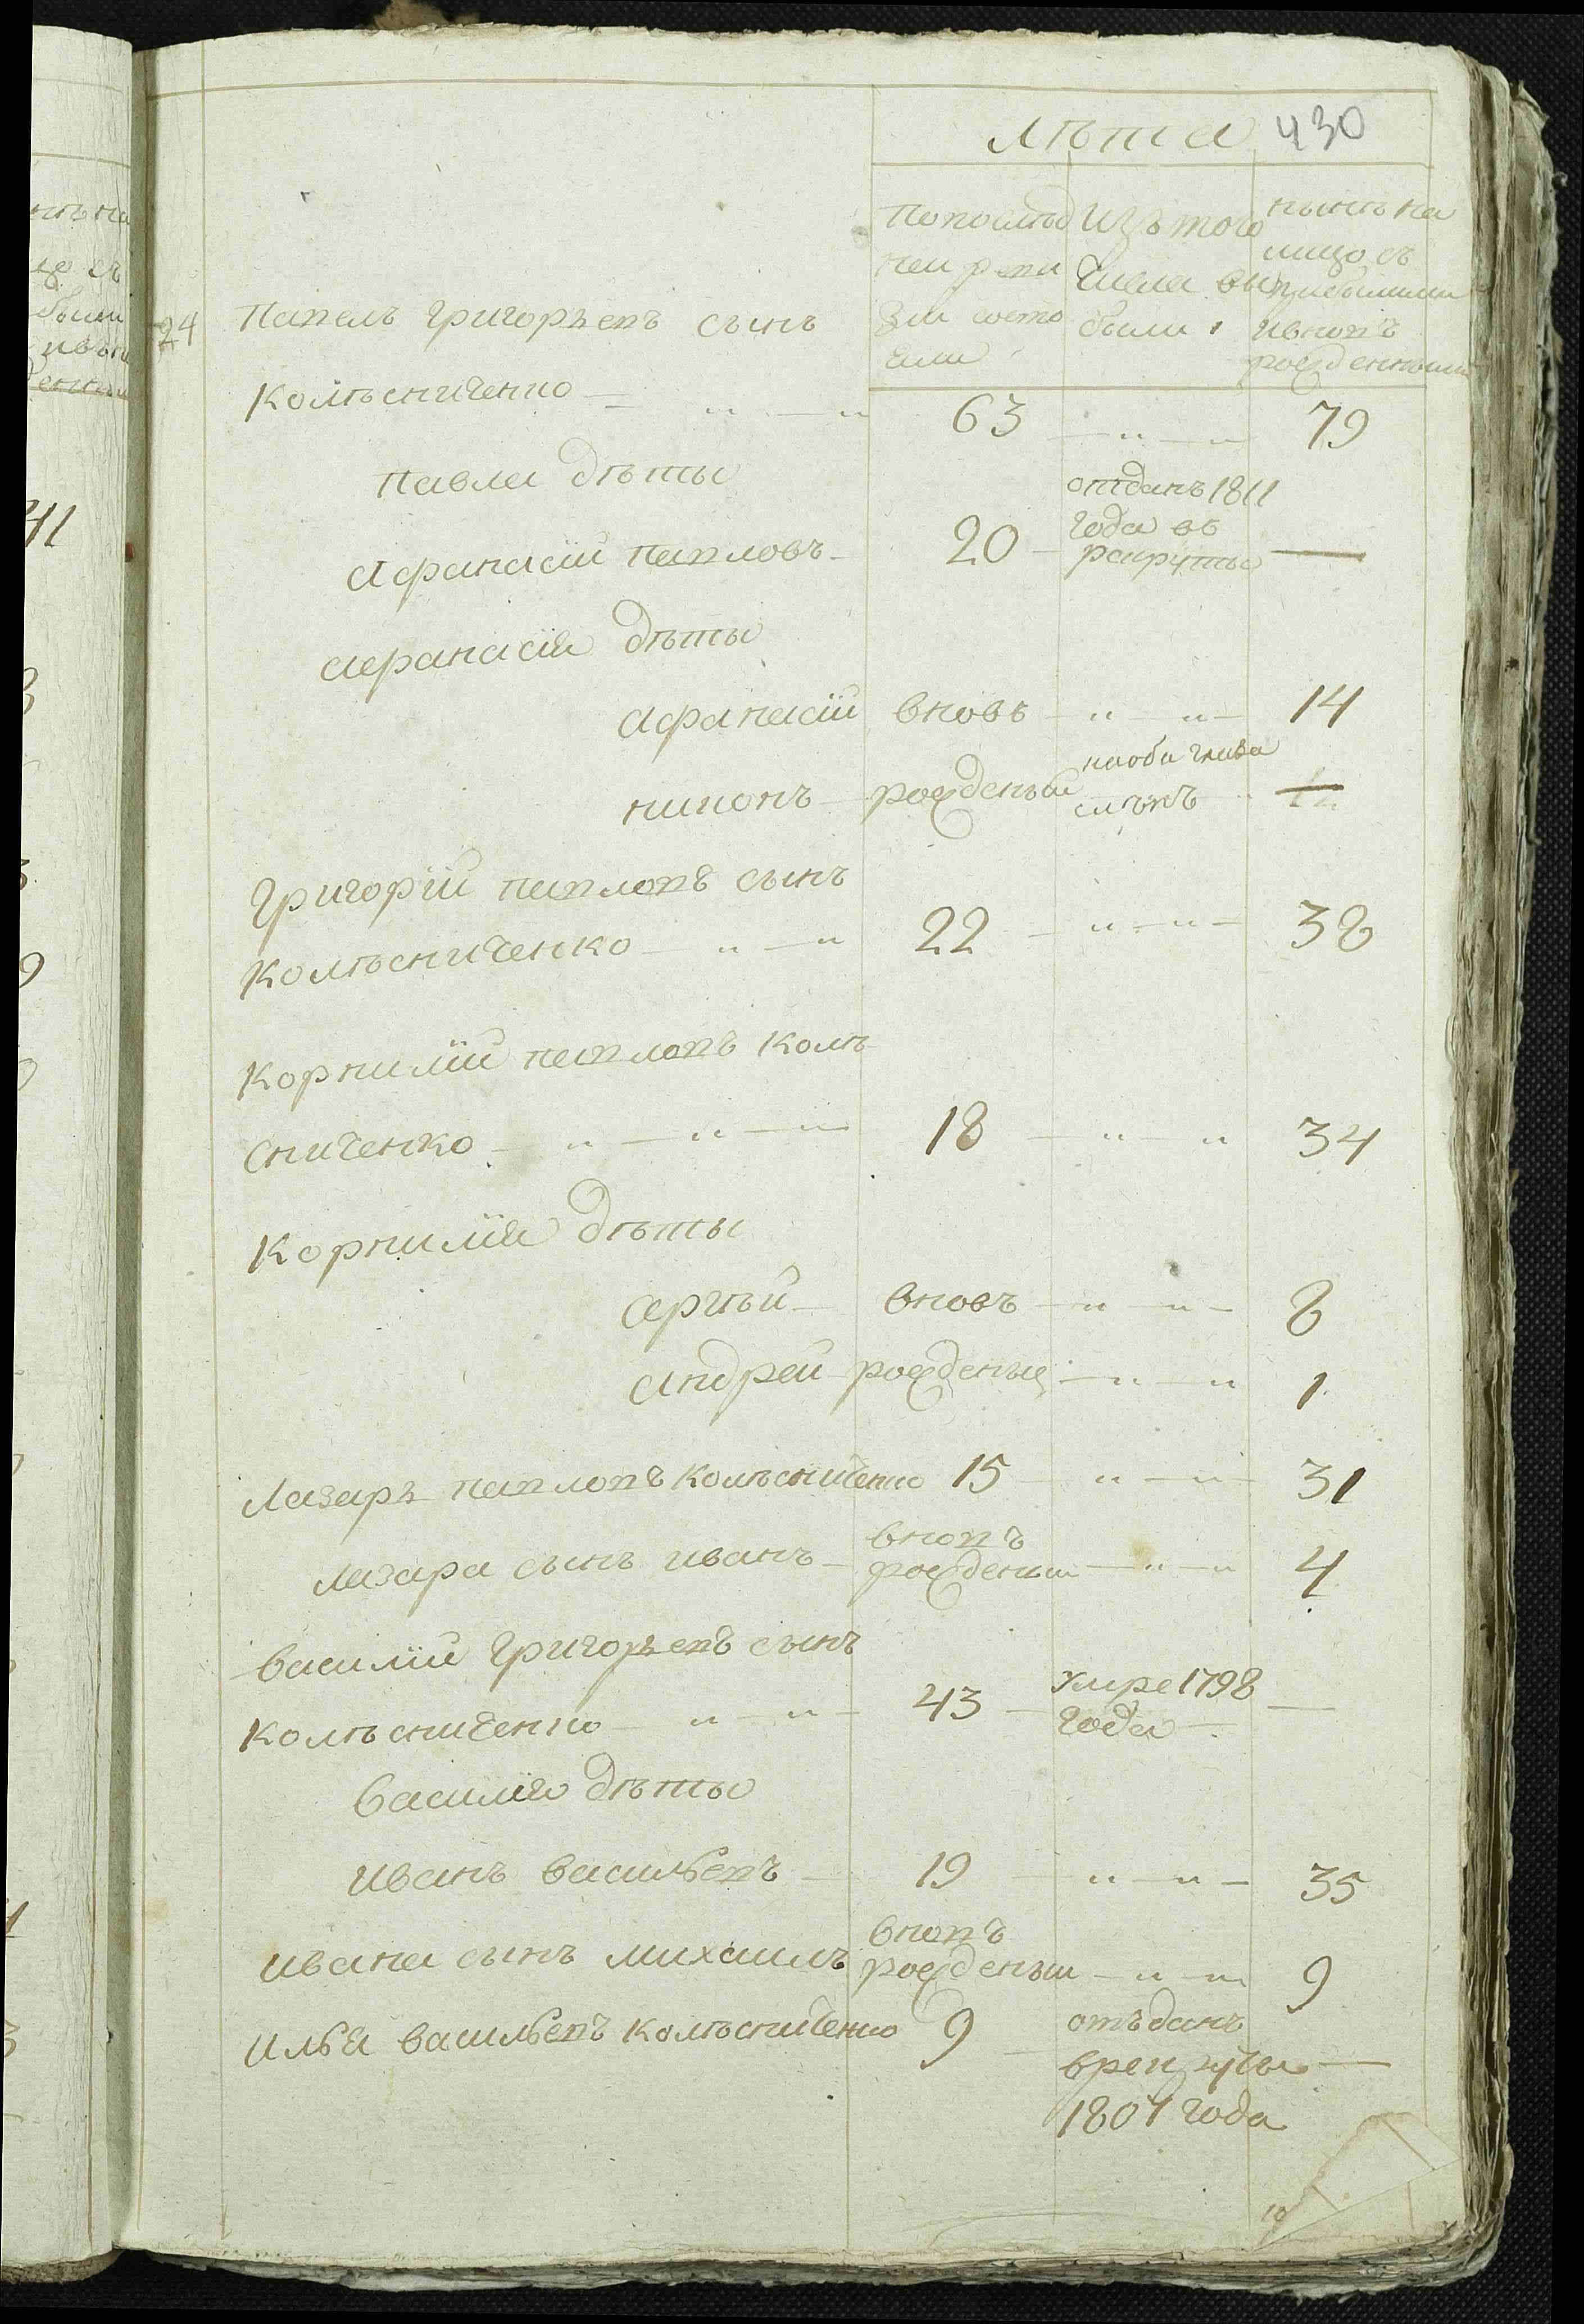 лѣта 430
По послѣд
ней реви
зіи состо
яли
Изъ того
числа вы
были
нынѣ на
лицо съ
прибылыми
и вновъ
рожденными
24 Павелъ Григорьевъ сынъ
Колѣсниченко — „ — „ 63 — „ — „ 79
Павла дѣты
Афанасій Павловъ — 20 — отданъ 1811
года въ
рекруты —
Афанасія дѣты
Афанасій вновъ — „ „ — 14
никонъ — рожденый
слѣпъ
Григорій Павловъ сынъ
Колѣсниченко — „ — „ 22 — „ — „ — 38
Корнилій Павловъ Колѣ
сниченко — „ — „ — „ 18 — „ „ 34
Корнилія дѣты
Сергѣй — вновъ — „ „ — 8
Андрей рожденые — „ — „ 1
Лазаръ Павловъ Колѣсниченко 15 — „ — „ — 31
Лазара сынъ Иванъ — вновъ
рожденый — „ — „ 4
Василій Григорьевъ сынъ
Колѣсниченко — „ — „ — 43 — умре 1798
года — —
Василія дѣты
Иванъ Васильевъ — 19 — „ — „ — 35
Ивана сынъ михаилъ вновъ
рожденый — „ — „ 9
Илья Васильевъ Колѣсниченко 9 — отъданъ
в рекруты —
1804 года